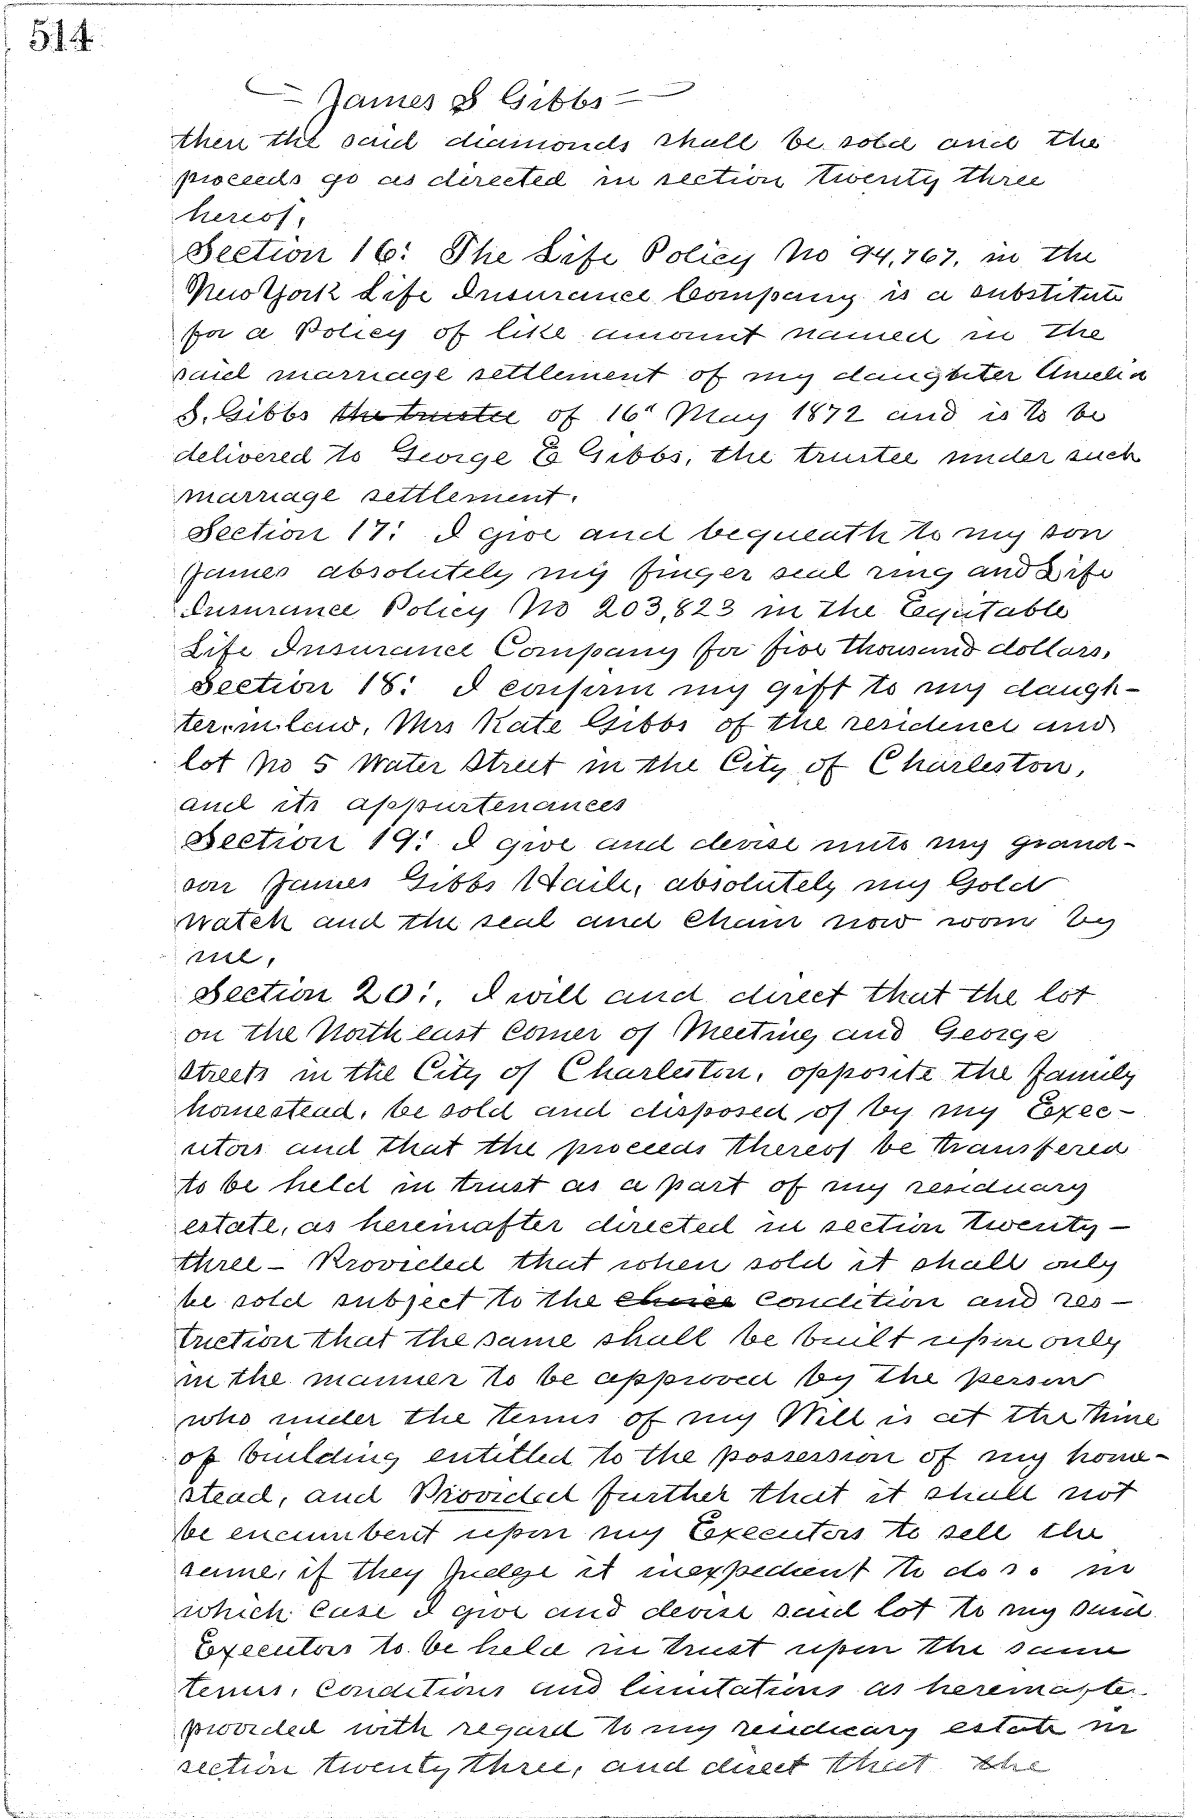 514
James S Gibbs
then the said diamonds shall be sold and the
proceeds go as directed in section twenty three
hereof.
Section 16: The Life Policy No 94,767, in the
New York Life Insurance Company is a substitute
for a Policy of like amount named in the
said marriage settlement of my daughter Amelia
S. Gibbs the trustee of 16" May 1872 and is to be
delivered to George E Gibbs, the trustee under such
marriage settlement.
Section 17: I give and bequeath to my son
James absolutely my finger seal ring and Life
Insurance Policy No 203,823 in the Equitable
Life Insurance Company for five thousand dollars,
Section 18: I confirm my gift to my daugh-
ter-in-law, Mrs Kate Gibbs of the residence and
lot No 5 Water Street in the City of Charleston,
and its appurtenances
Section 19: I give and devise unto my grand-
son James Gibbs Haile, absolutely my Gold
watch and the seal and chain now worn by
me,
Section 20:, I will and direct that the lot
on the North east corner of Meeting and George
Streets in the City of Charleston, opposite the family
homestead, be sold and disposed of by my Exec-
utors and that the proceeds thereof be transfered
to be held in trust as a part of my residuary
estate, as hereinafter directed in section twenty-
three - Provided that when sold it shall only
be sold subject to the choice condition and res-
truction that the same shall be built upon only
in the manner to be approved by the person
who under the terms of my Will is at the time
of building entitled to the possession of my home-
stead, and Provided further that it shall not
be encumbent upon my Executors to sell the
same, if they Judge it inexpedient to do so in
which case I give and devise said lot to my said
Executors to be held in trust upon the same
terms, conditions and limitations as hereinafter
provided with regard to my residuary estate in
section twenty three, and direct that the